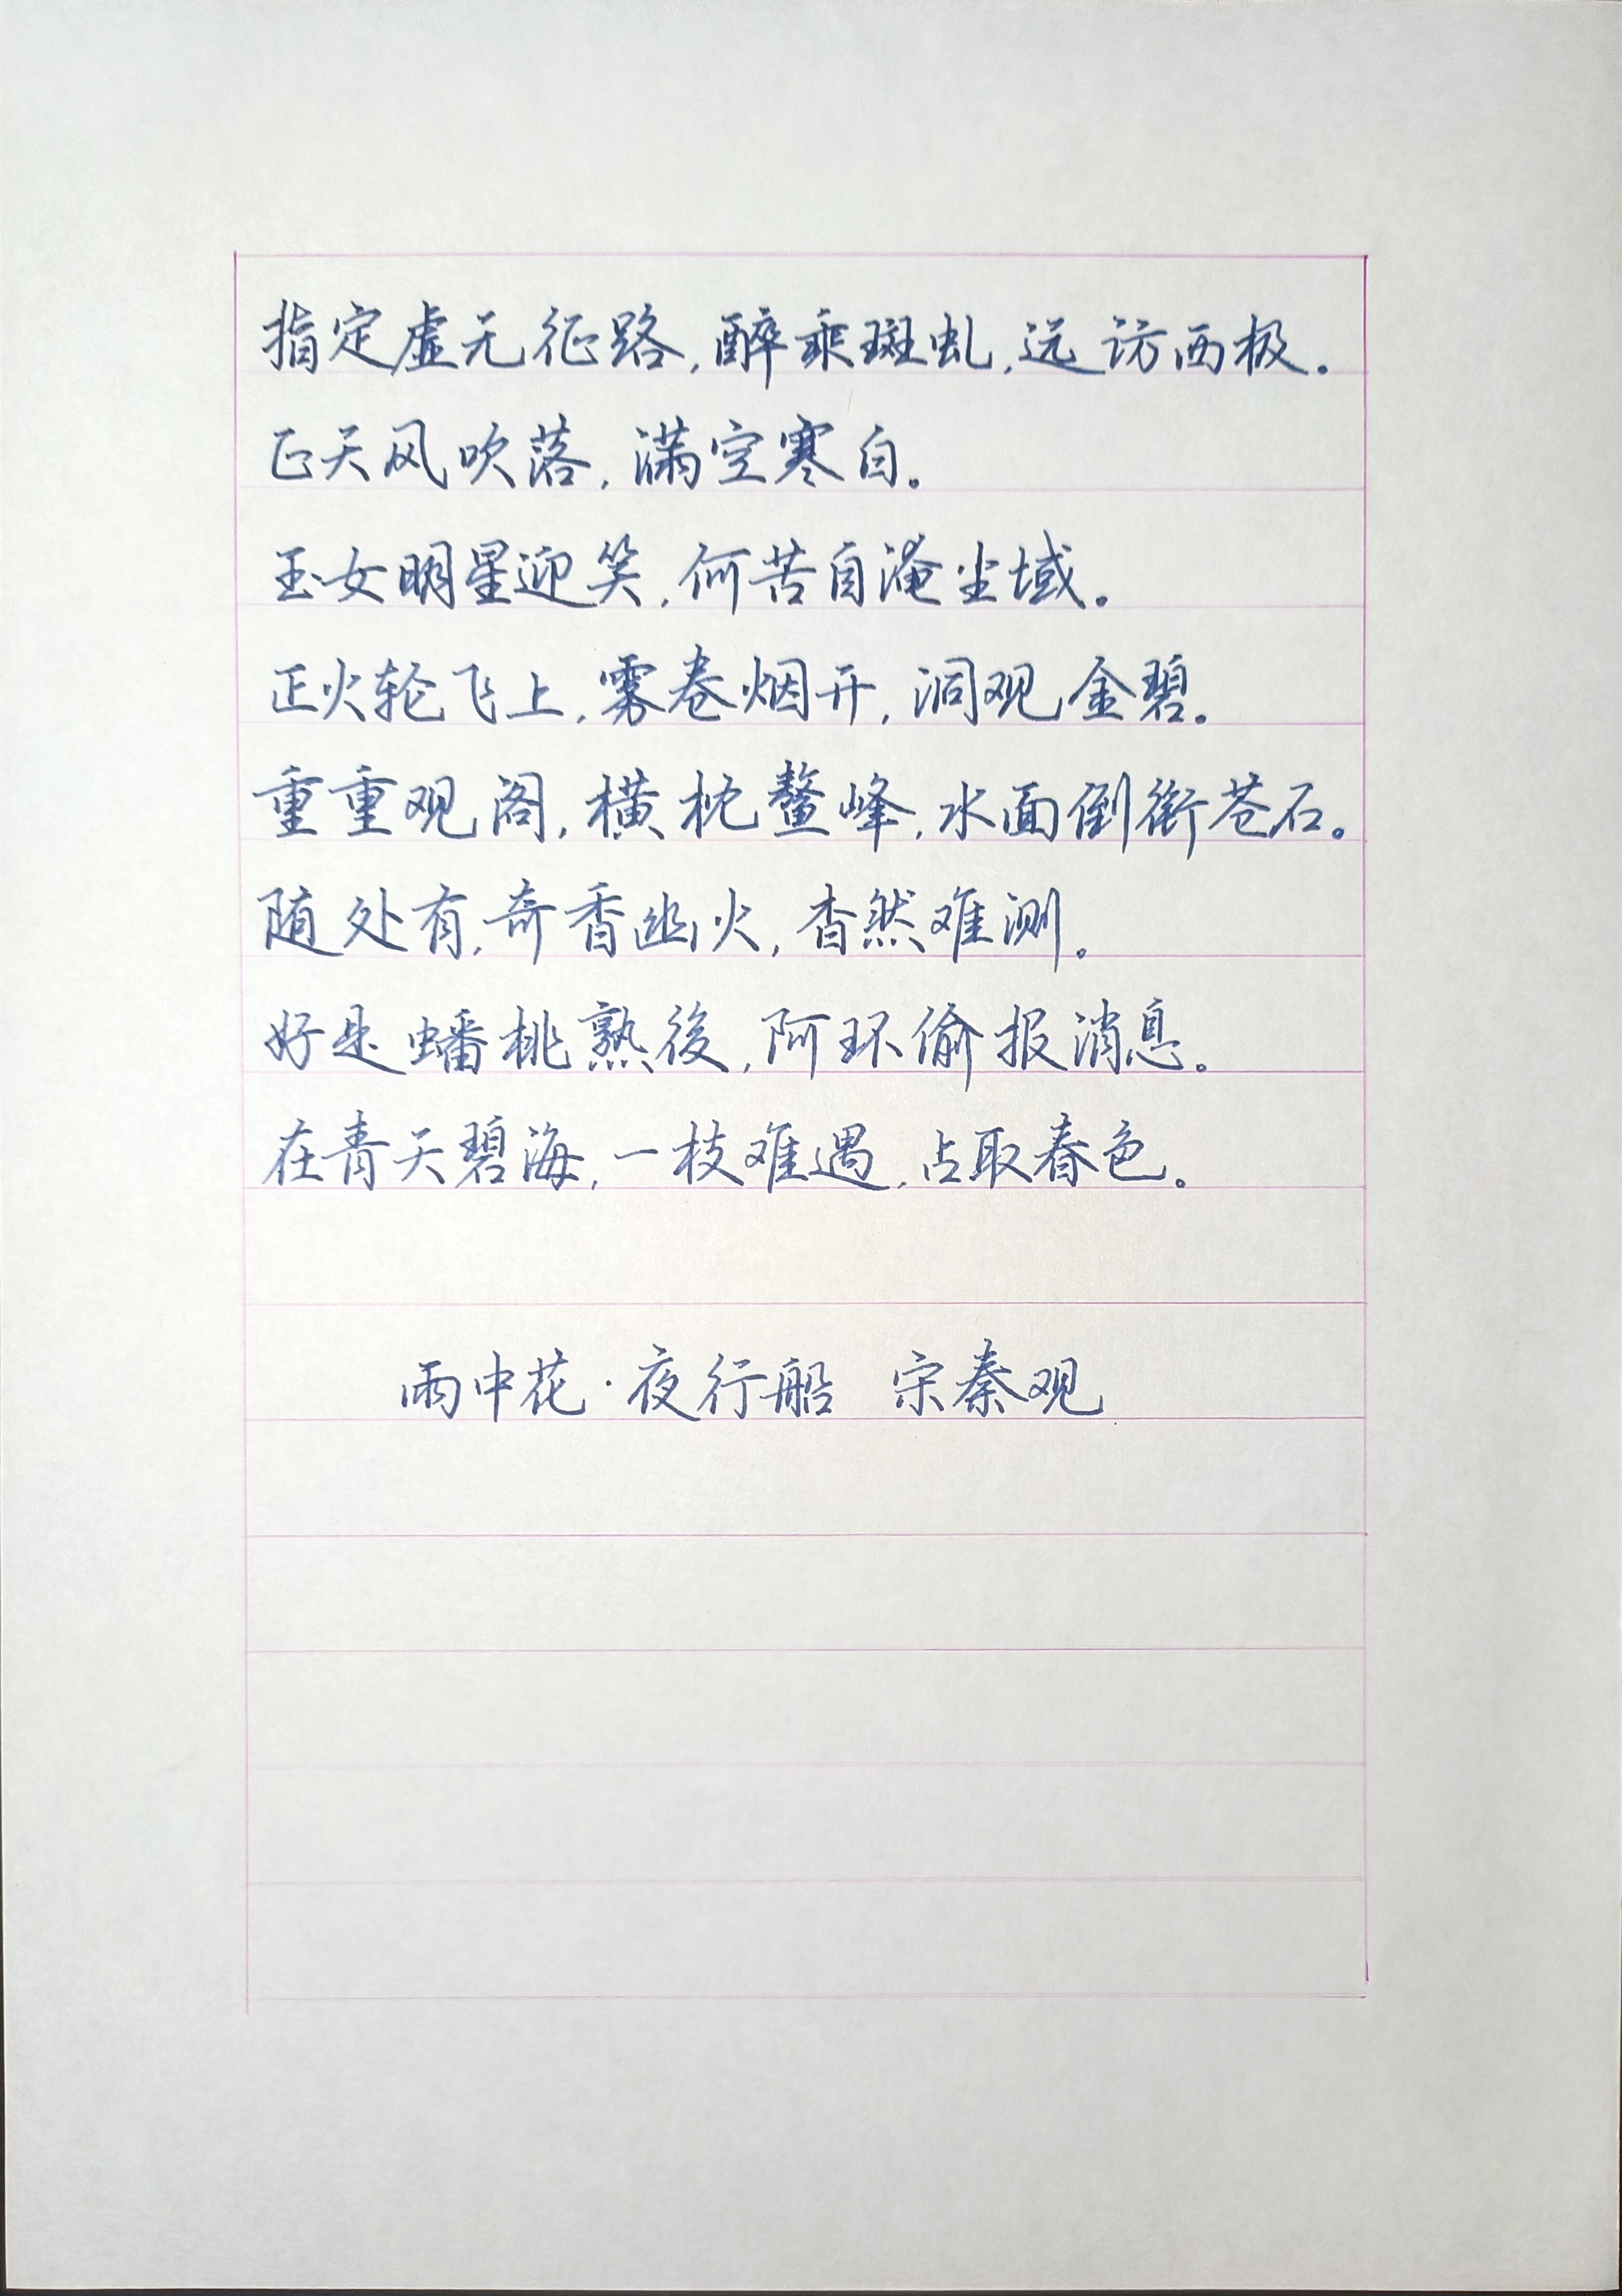 指定虚无征路,醉乘斑虬,远访西极。
正天风吹落,满空寒白。
玉女明星迎笑,何苦自淹尘域。
正火轮飞上,雾卷烟开,洞观金碧。
重重观阁,横枕鳌峰,水面倒衔苍石。
随处有,奇香幽火,杳然难测。
好是蟠桃熟後,阿环偷报消息。
在青天碧海,一枝难遇,占取春色。
雨中花·夜行船 宋秦观